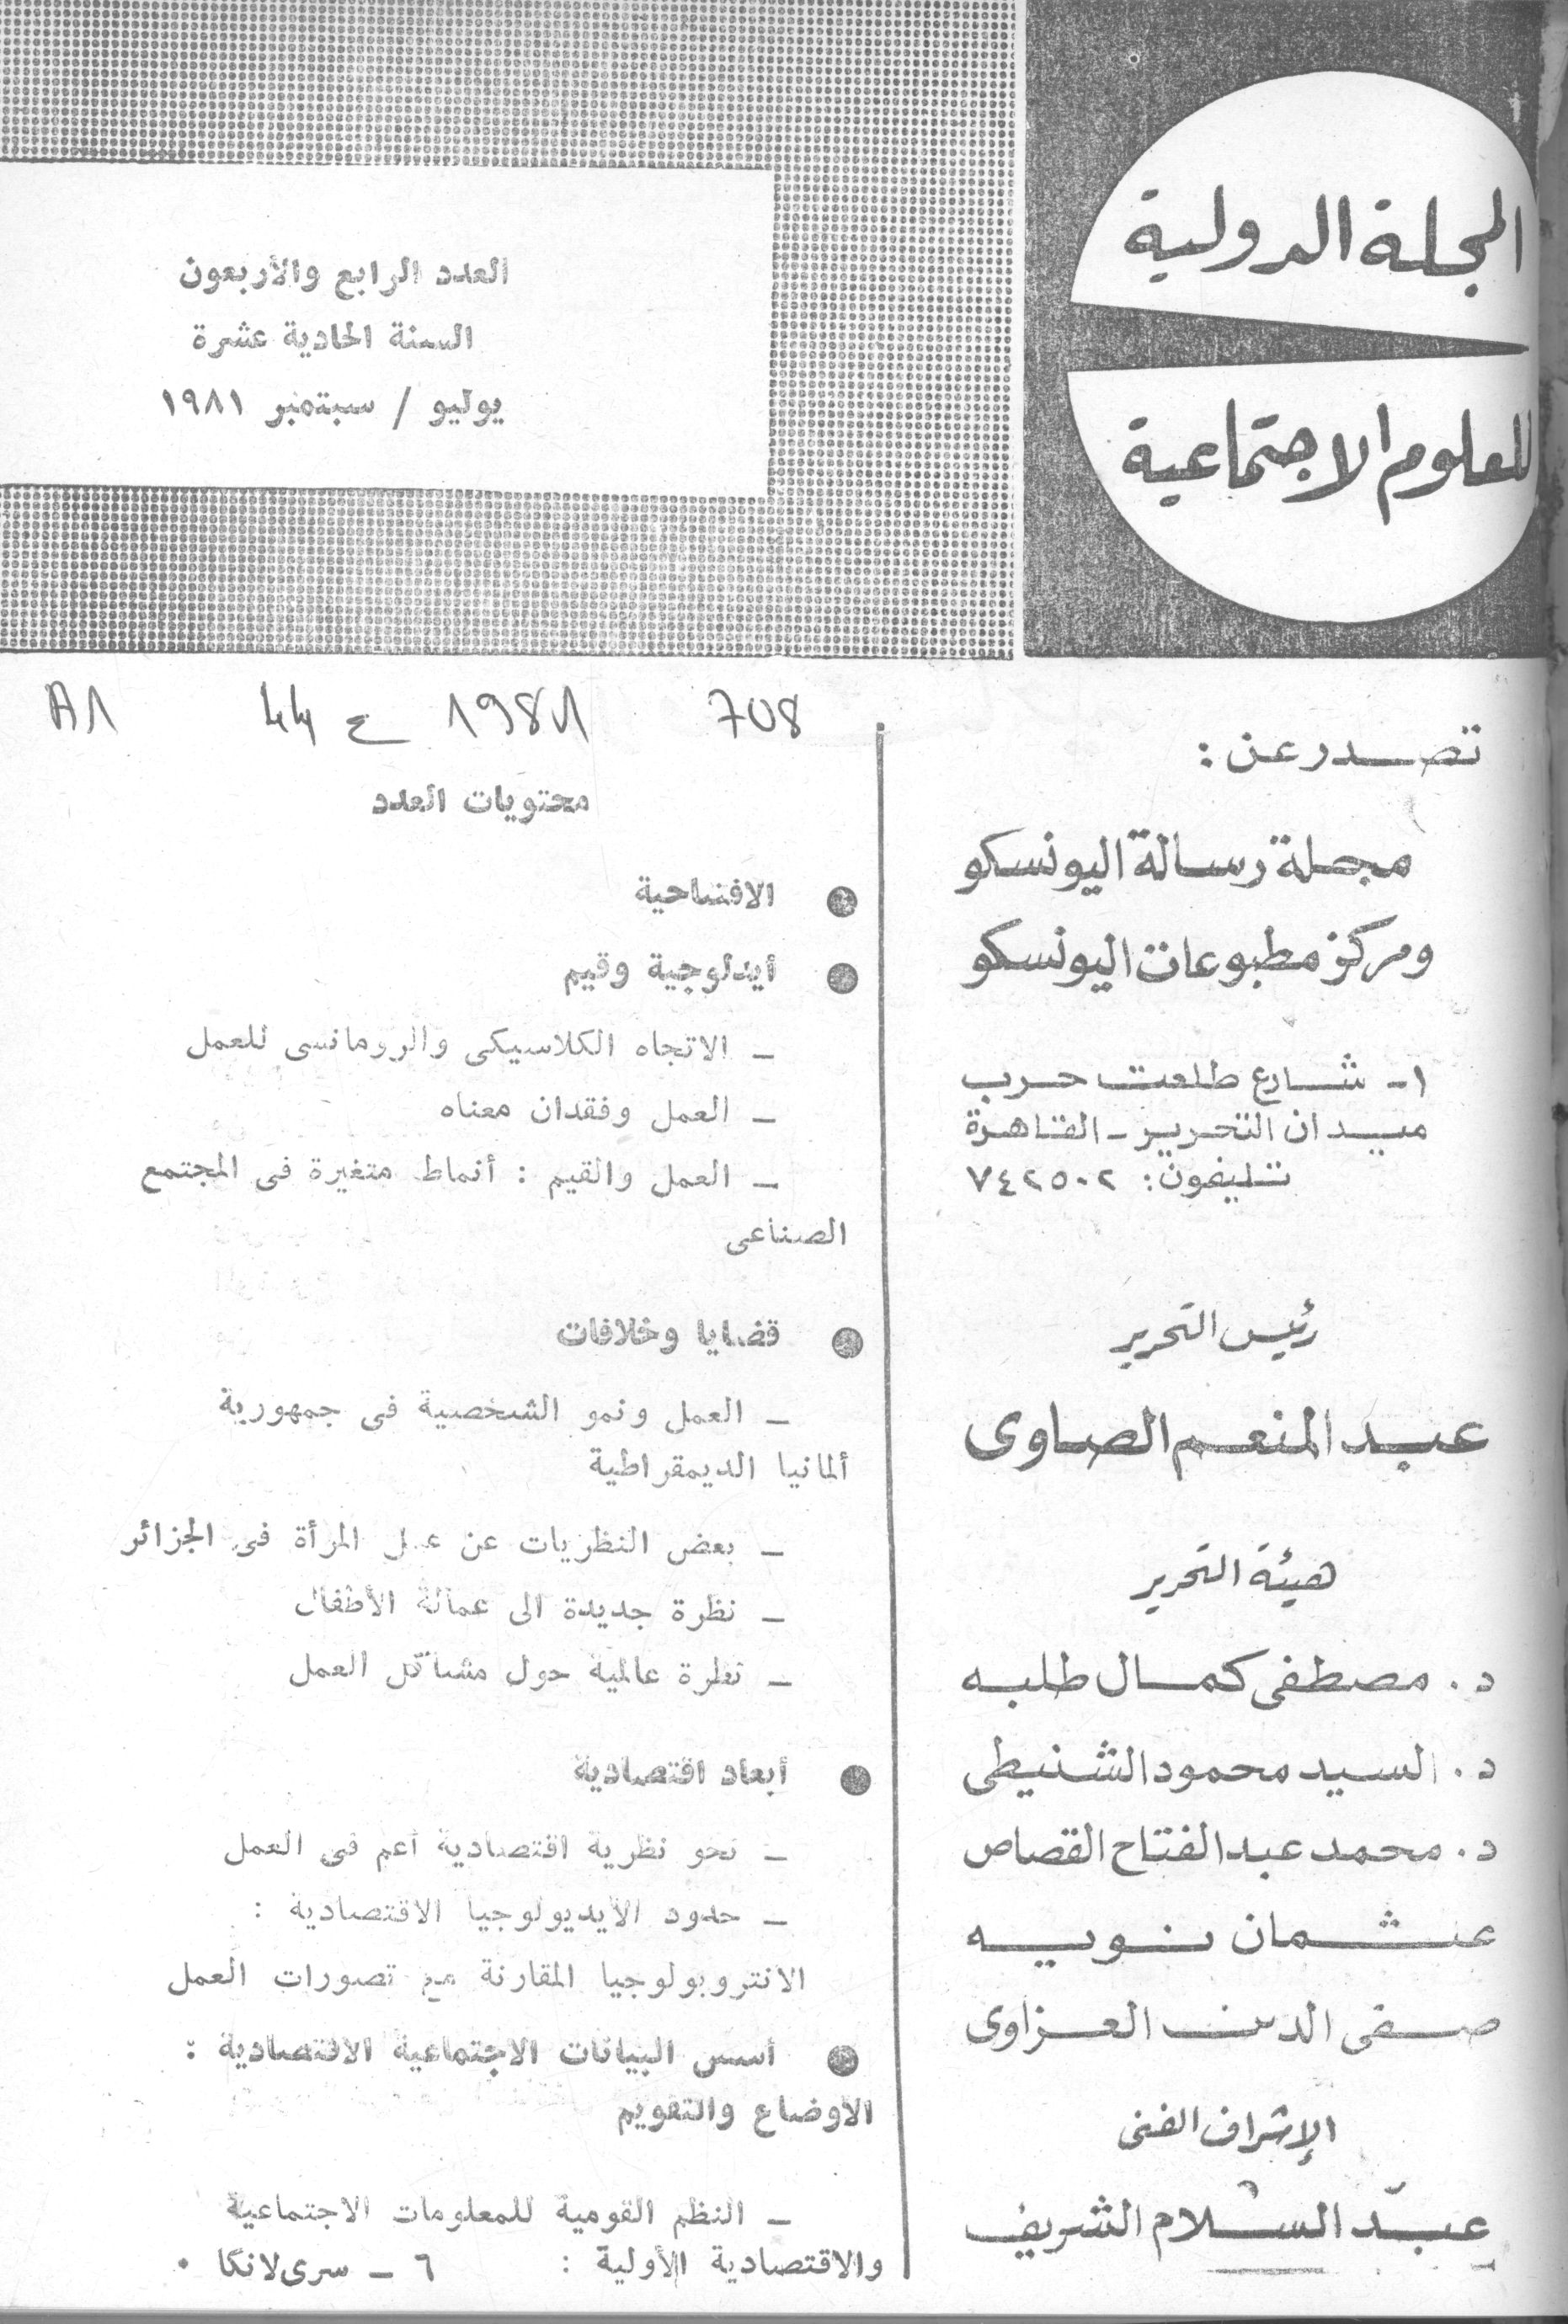 المجلة الدولية
للعلوم الاجتماعية
العدد الرابع والأربعون
السنة الحادية عشرة
يوليو / سبتمبر ١٩٨١
تصدر عن :
مجلة رسالة اليونسكو
ومركز مطبوعات اليونسكو
١ - شارع طلعت حرب
ميدان التحرير - القاهرة
تليفون : ٧٤٢٥٠٢
رئيس التحرير
عبد المنعم الصاوى
هيئة التحرير
د . مصطفى كمال طلبه
د . السيد محمود الشنيطى
د . محمد عبد الفتاح القصاص
عثمان نويه
صفى الدين العزاوى
الإشراف الفنى
عبد السلام الشريف
708 ع 44
محتويات العدد
● الافتتاحية
● أيدلوجية وقيم
ــ الاتجاه الكلاسيكى والرومانسى للعمل
ــ العمل وفقدان معناه
ــ العمل والقيم : أنماط متغيرة فى المجتمع
الصناعى
● قضايا وخلافات
ــ العمل ونمو الشخصية فى جمهورية
ألمانيا الديمقراطية
ــ بعض النظريات عن عمل المرأة فى الجزائر
ــ نظرة جديدة الى عمالة الأطفال
ــ نظرة عالمية حول مشاكل العمل
● أبعاد اقتصادية
ــ نحو نظرية اقتصادية أعم فى العمل
ــ حدود الأيديولوجيا الاقتصادية :
الانتروبولوجيا المقارنة مع تصورات العمل
● أسس البيانات الاجتماعية الاقتصادية :
الاوضاع والتقويم
ــ النظم القومية للمعلومات الاجتماعية
والاقتصادية الأولية : ٦ ــ سرى لانكا .